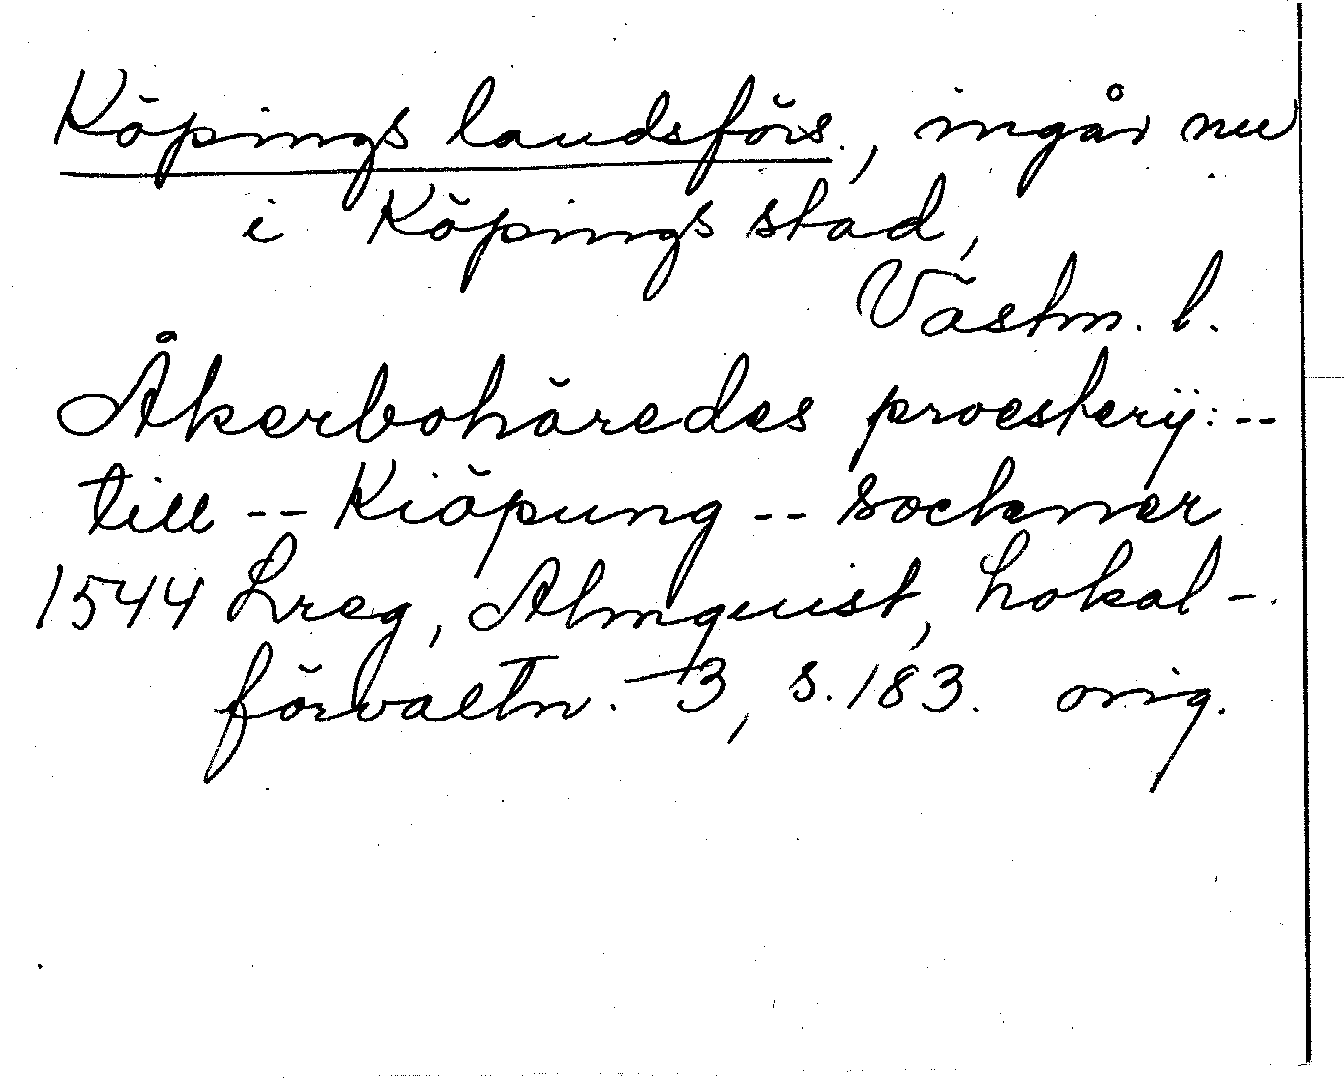 Köpings landsförs., ingår nu
i Köpings stad,
Västm. l.
Åkerbohäredes proesterij: --
till -- Kiöpung -- sockner
1544 Lreg, Almquist, Lokal-
förvaltn. 3, s. 183. orig.